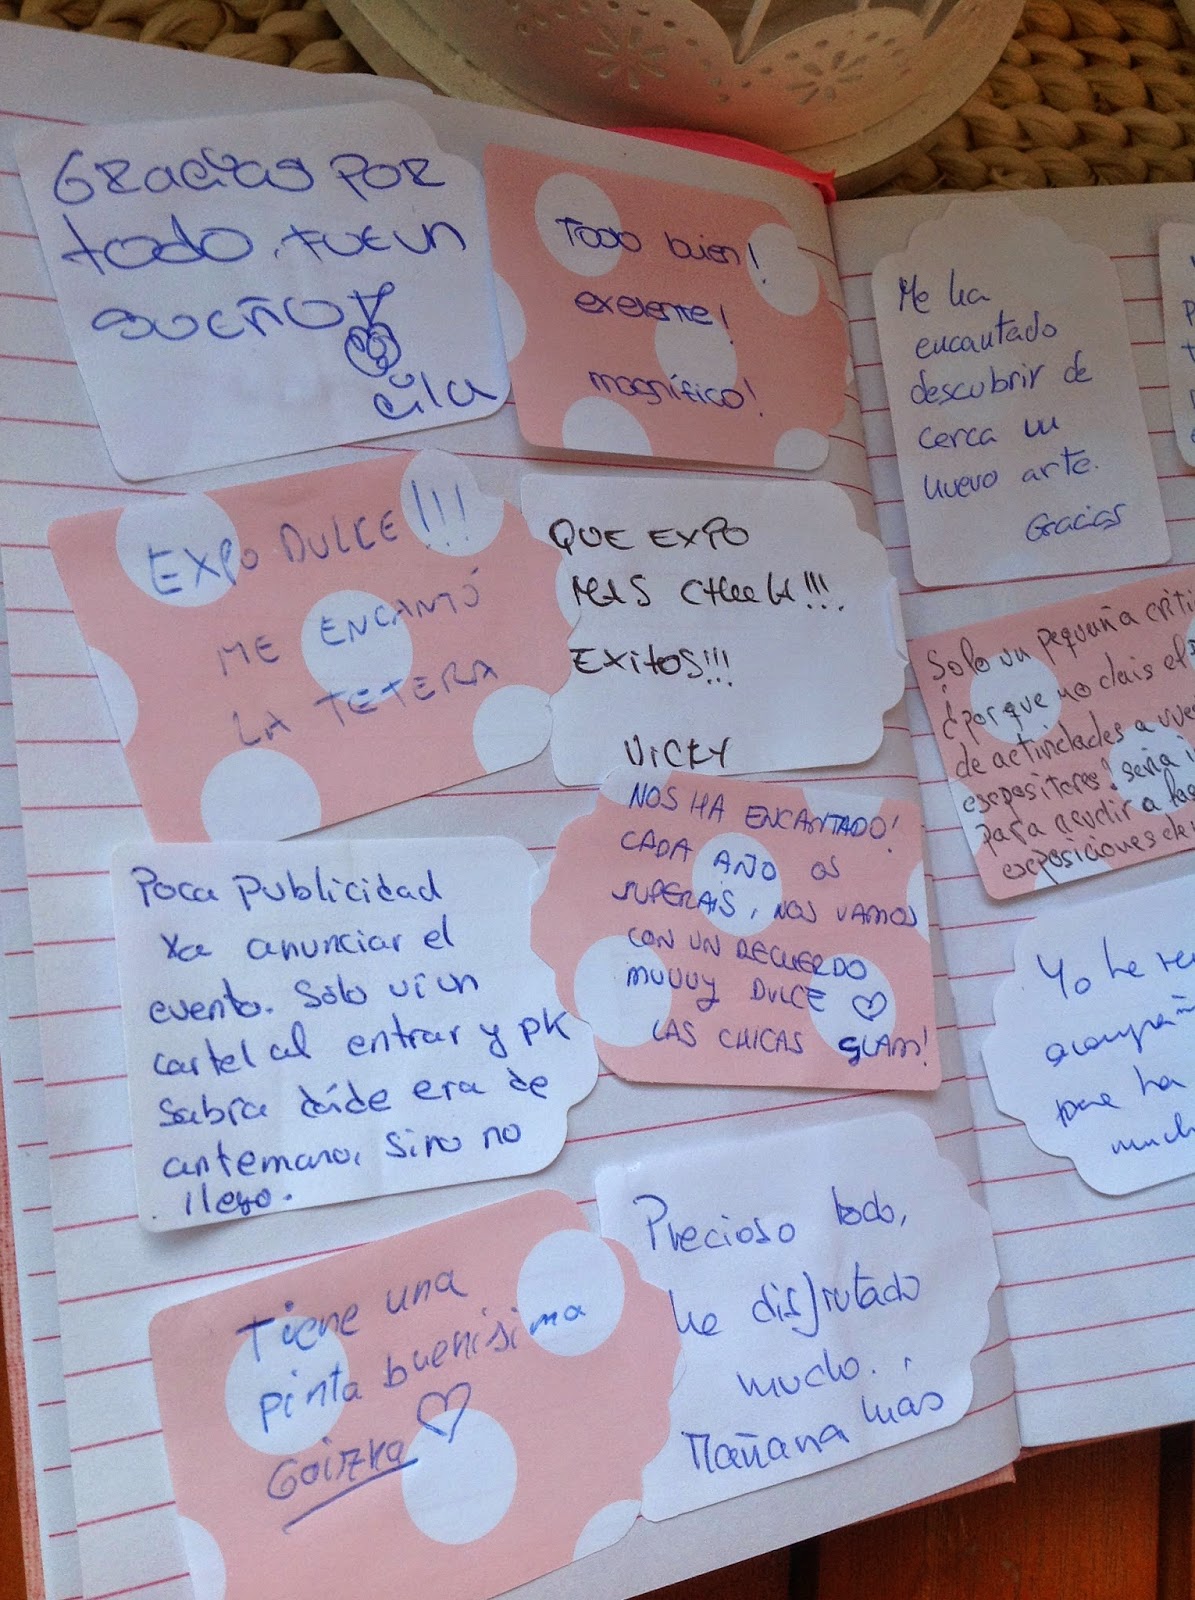 Gracias por
todo, fue un
sueño
Todo bien!
exelente!
magnífico!
EXPO DULCE!!!
ME ENCANTÓ
LA TETERA
QUE EXPO
MAS CHULA!!!
EXITOS!!!
VICKY
Poca publicidad
xa anunciar el
evento. Solo vi un
cartel al entrar y pk
sabía dóde era de
antemano, sino no
llego.
NOS HA ENCANTADO!
CADA AÑO OS
SUPERAIS, NOS VAMOS
CON UN RECUERDO
MUUUY DULCE
LAS CHICAS GLAM!
Tiene una
pinta buenisima
Goizka
Precioso todo,
he disfrutado
mucho.
Mañana más
Me ha
encantado
descubrir de
cerca un
nuevo arte.
Gracias
Solo un pequeña
¿porque no dais el
de actividades a
expositores? sería
para acudir a
exposiciones de
Yo he
para ha